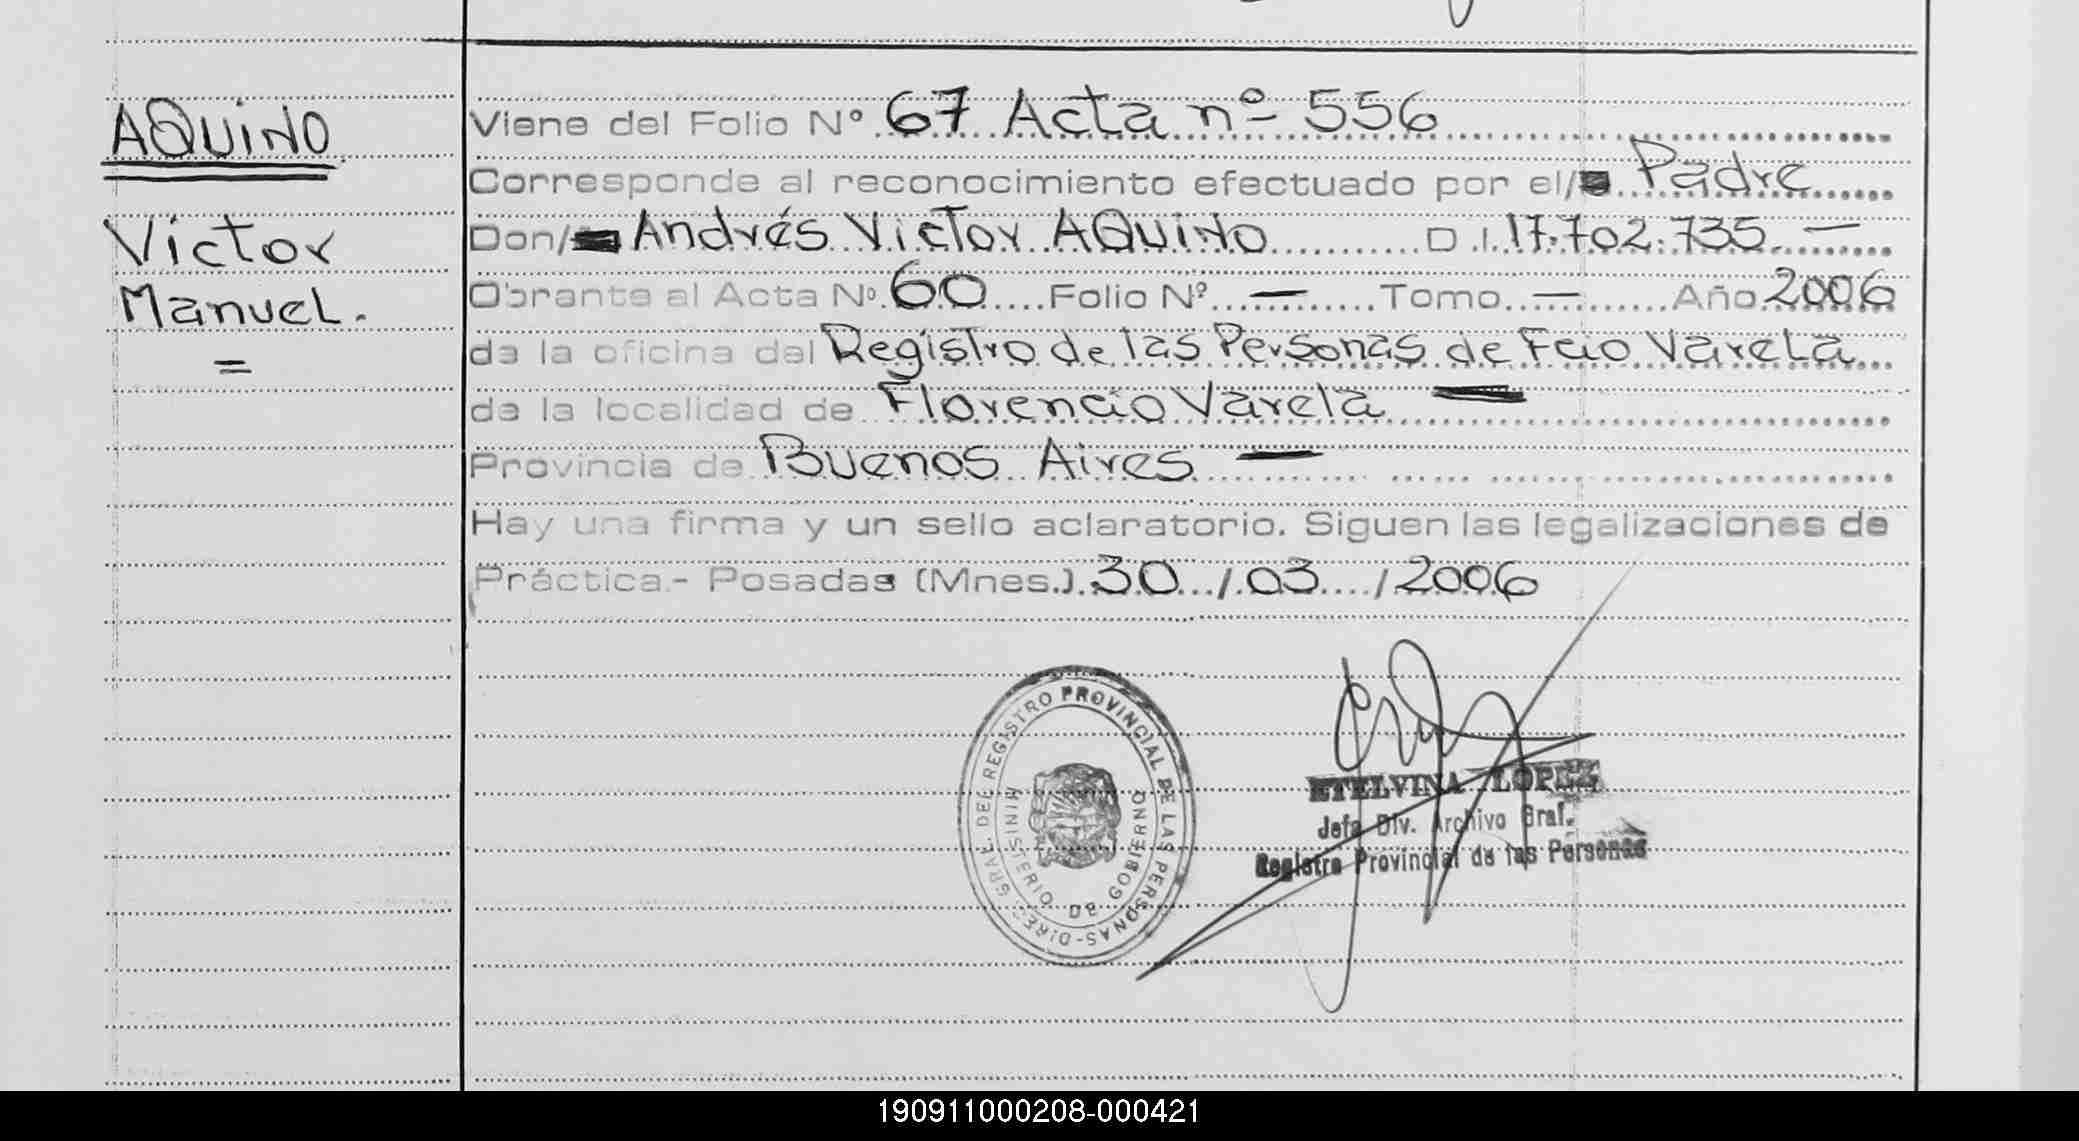 AQUINO
Víctor
Manuel.
=
Viene del Folio Nº 67 Acta nº 556
Corresponde al reconocimiento efectuado por el/ Padre
Don/ Andrés Victor AQUINO D.I. 17.702.735. —
Obrante al Acta Nº 60 Folio Nº — Tomo — Año 2006
de la oficina del Registro de las Personas de Fcio Varela
de la localidad de Florencio Varela —
Provincia de Buenos Aires —
Hay una firma y un sello aclaratorio. Siguen las legalizaciones de
Práctica.- Posadas (Mnes.) 30 / 03 / 2006
DIREC. GRAL. DEL REGISTRO PROVINCIAL DE LAS PERSONAS-
MINISTERIO DE GOBIERNO
ETELVINA LOPEZ
Jefa Div. Archivo Gral.
Registro Provincial de las Personas
190911000208-000421